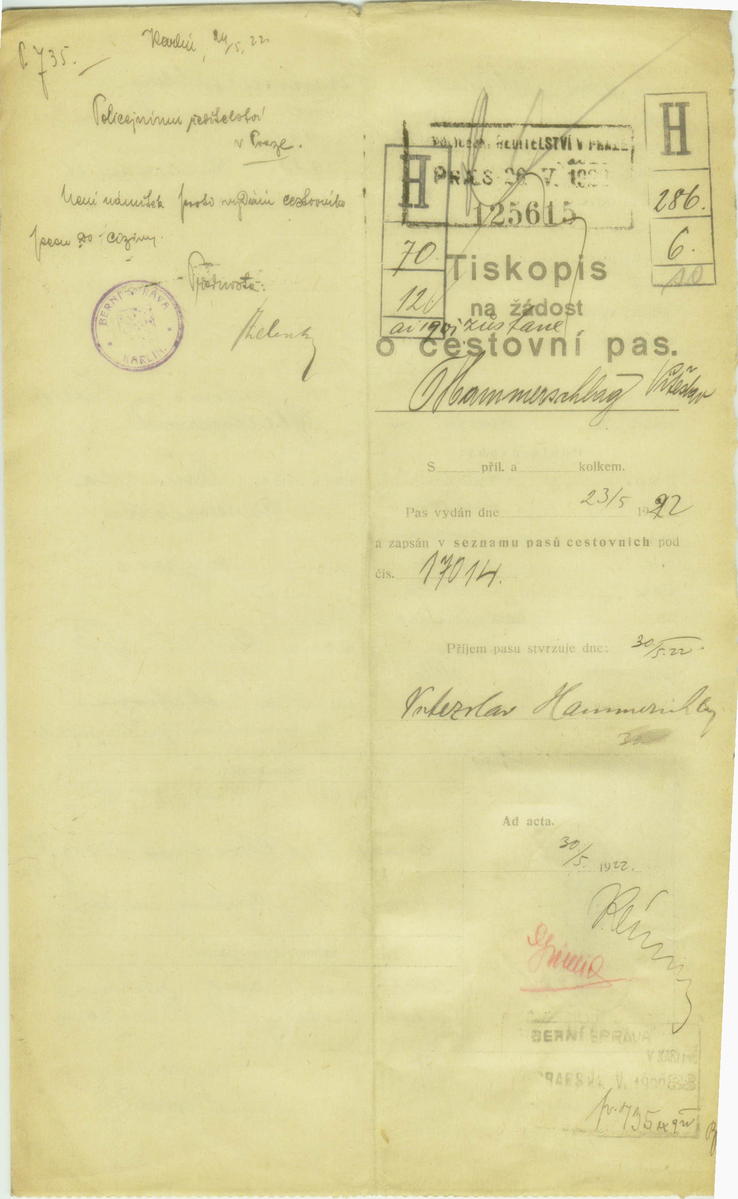 Č. 735.
Karlín, 24/5. 22
Policejnímu ředitelství
v Praze.
Není námitek proti vydání cestovního
pasu do ciziny.
Přednosta:
BERNÍ SPRÁVA
KARLÍN
ŘEDITELSTVÍ V PRAZE
PRAES 26. V. 192
125615
H
286.
6.
10
H
70
12
Tiskopis
na žádost
zůstane
o cestovní pas.
Hammerschlag Vítězslav
S příl. a kolkem.
Pas vydán dne 23/5 1922
a zapsán v seznamu pasů cestovních pod
čís. 17014.
Příjem pasu stvrzuje dne: 30/5.22.
Vítězslav Hammerschlag
Ad acta.
30/5. 1922.
BERNÍ SPRÁVA
V KARLÍNĚ
735